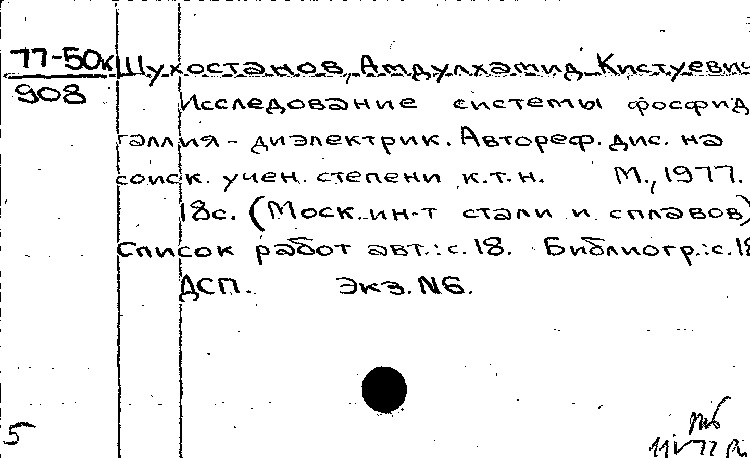 77-50к Шухостанов, Амдулхамид Кистуевич
908
Исследование системы фосфид
галлия - диэлектрик. Автореф. дис. на
соиск. учен. степени к.т.н. М., 1977.
18с. (Моск. ин-т стали и сплавов)
Список работ авт.: с. 18. Библиогр.: с. 18
ДСП. Экз. N6.
5